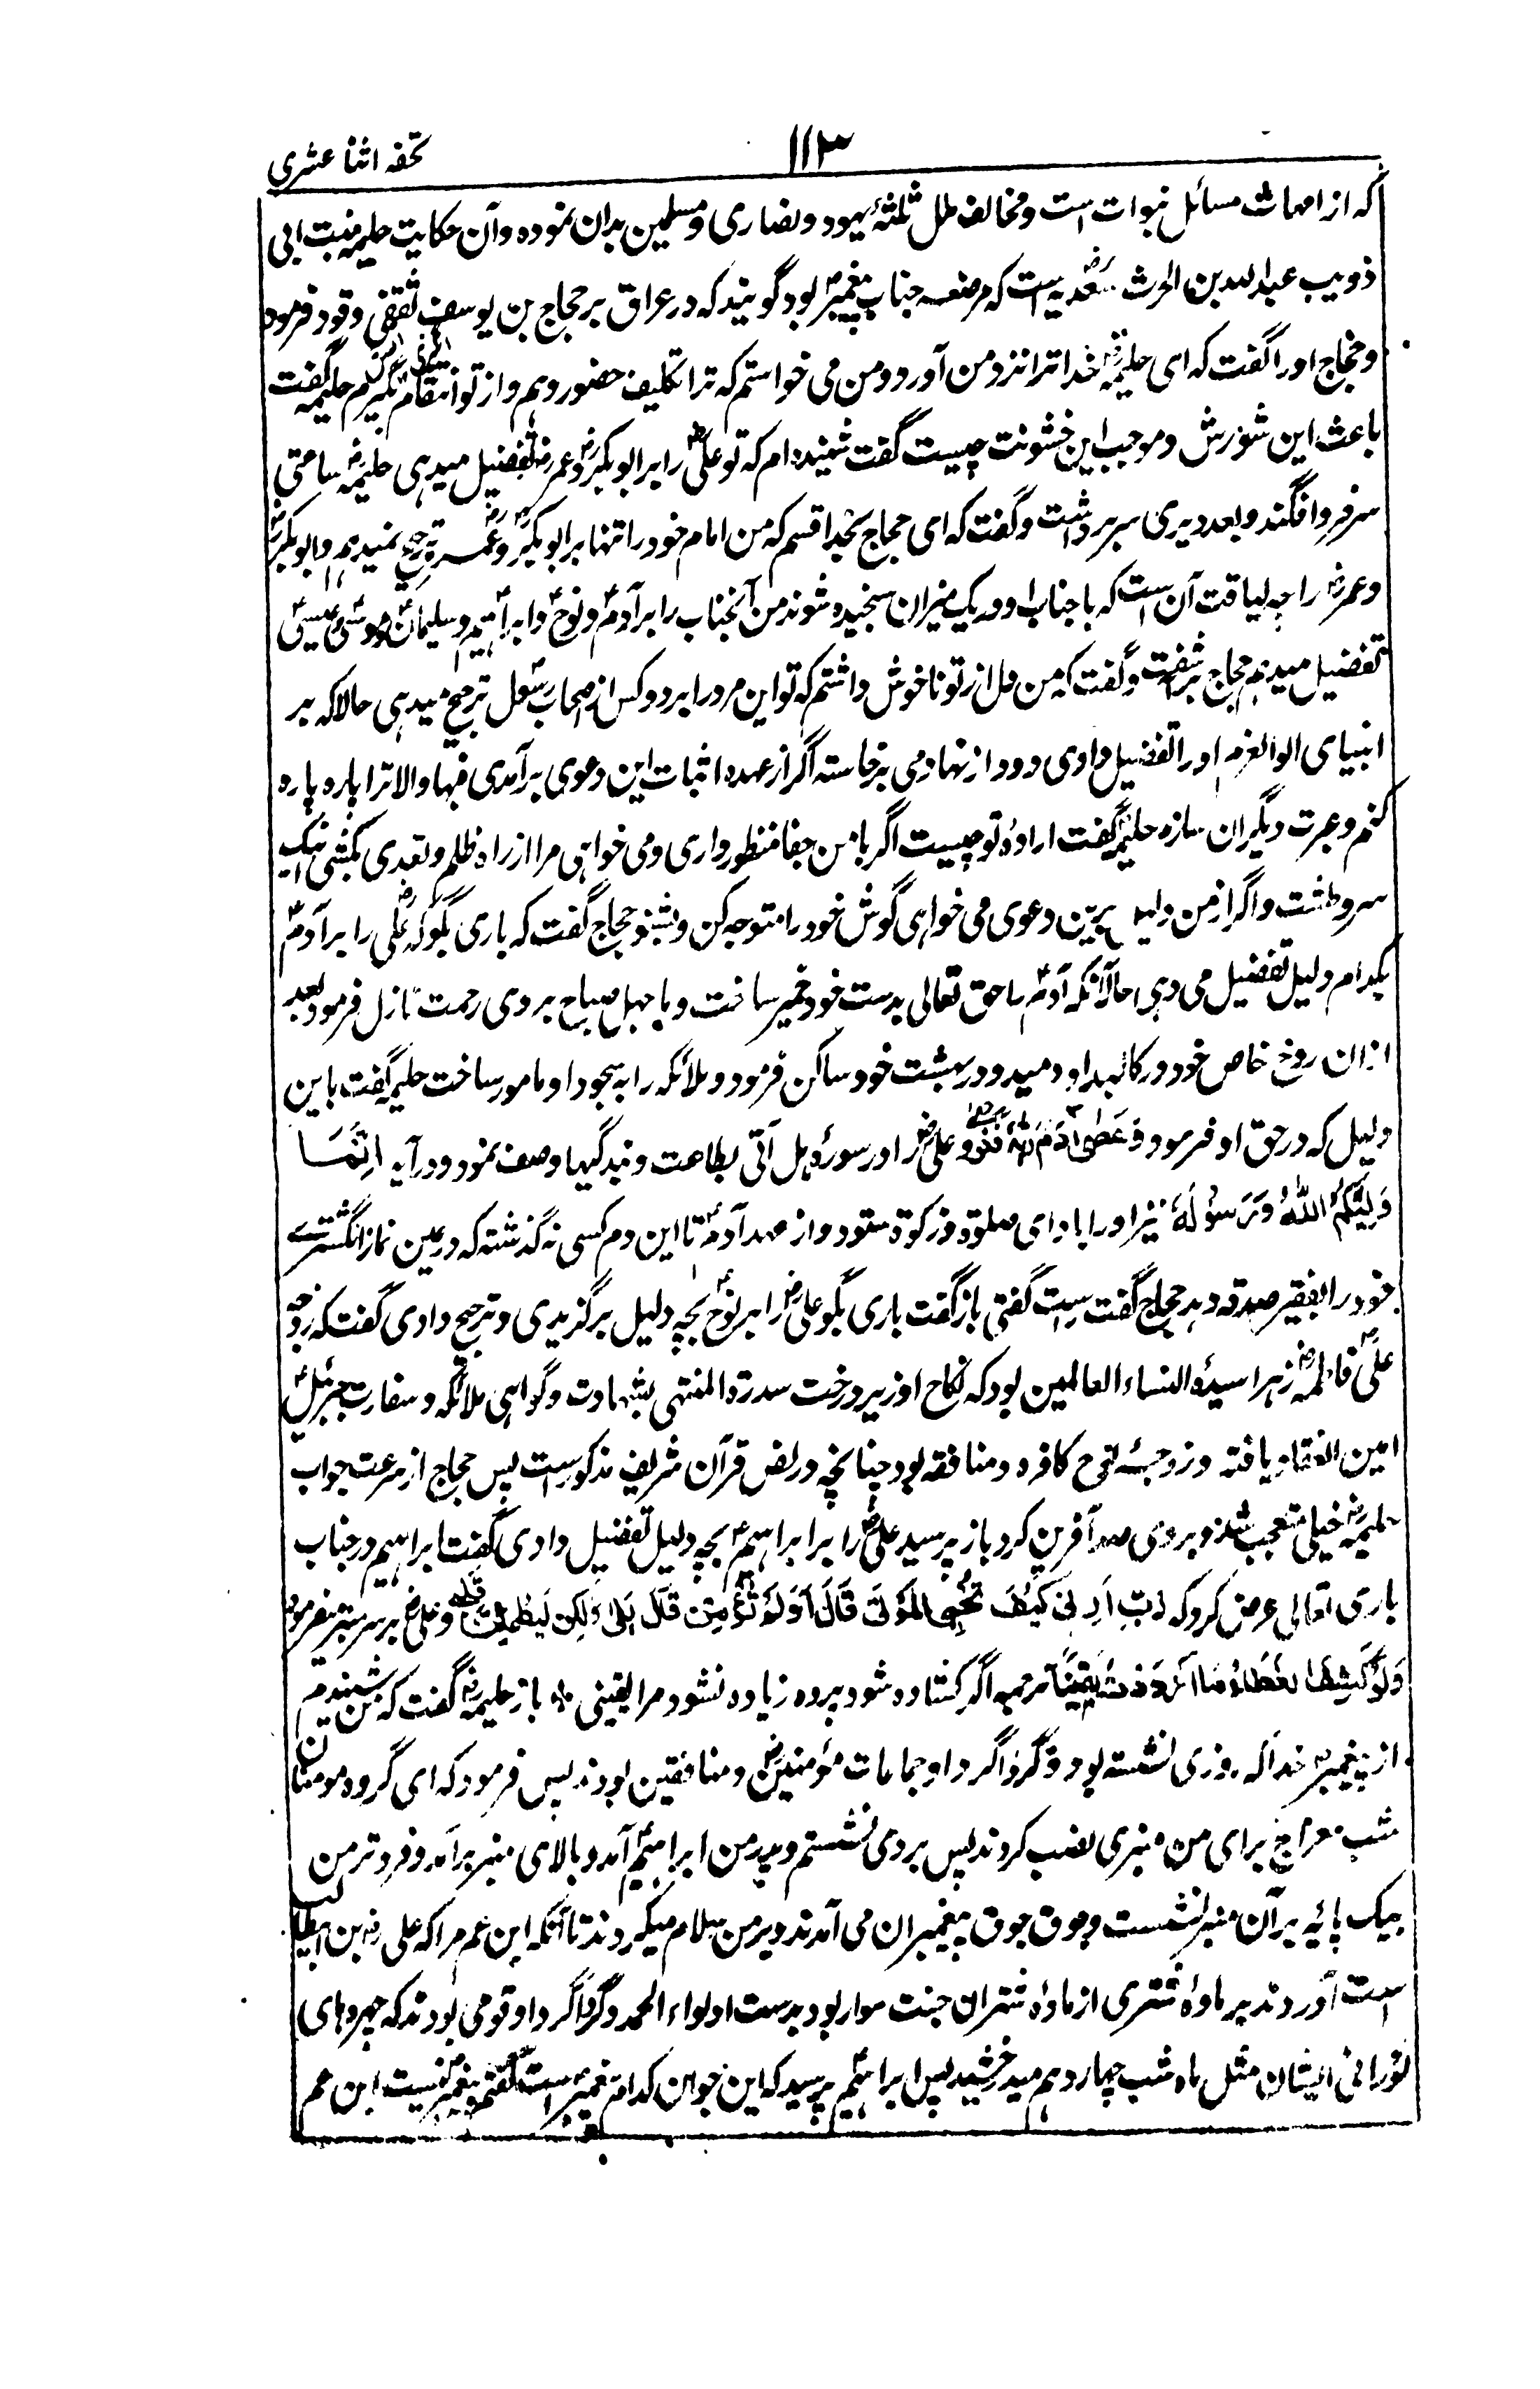 تحفه اثنا عشری ۱۱۳
که از امهات مسائل نبوات است و مخالف ملل ثلثهٔ یهود و نصاری و مسلمین بدان نموده و آن حکایت حلیمه بنت ابی
ذویب عبدالله بن الحرث سعدیه است که مرضعه جناب پیغمبر بود گویند که در عراق بر حجاج بن یوسف ثقفی وفود فرمود
و حجاج او را گفت که ای حلیمه خدا ترا نزد من آورد و من می خواستم که ترا تکلیف حضور دهم و از تو انتقام گیرم حلیمه گفت
باعث این شورش و موجب این خشونت چیست گفت شنیده ام که تو علی را بر ابوبکر و عمر تفضیل میدهی حلیمه ساعتی
سر فرو افگند و بعد دیری سر برداشت و گفت که ای حجاج بخدا قسم که من امام خود را تنها بر ابوبکر و عمر ترجیح نمیدهم و ابوبکر
و عمر را چه لیاقت آن است که با جناب او در یک میزان سنجیده شوند من آنجناب را بر آدم و نوح و ابراهیم و سلیمان و موسی و عیسی
تفضیل میدهم حجاج برآشفت و گفت که من دل از تو ناخوش داشتم که تو این مرد را بر دو کس از اصحاب رسول ترجیح میدهی حالا که بر
انبیای اولوالعزم او را تفضیل دادی دود از نهادمی برخاسته اگر از عهده اثبات این دعوی برآمدی فبها والا ترا پاره پاره
کنم و عبرت دیگران سازم حلیمه گفت ارادهٔ تو چیست اگر با من جفا منظور داری و می خواهی مرا از راه ظلم و تعدی بکشی اینک
سر و طشت و اگر از من دلیل برین دعوی می خواهی گوش خود را متوجه کن و بشنو حجاج گفت که باری بگو که علی را بر آدم
بکدام دلیل تفضیل می دهی حالآنکه آدم را حق تعالی بدست خود خمیر ساخت و با چهل صباح بر وی رحمت نازل فرمود بعد
ازان روح خاص خود در کالبد او دمید و در بهشت خود ساکن فرمود و ملائکه را به سجود او مامور ساخت حلیمه گفت باین
دلیل که در حق او فرمود و عَصٰی اٰدَمُ رَبَّهٗ فَغَوٰی و علی را در سورهٔ هل اتی بطاعت و بندگیها وصف نمود و در آیه اِنَّمَا
وَلِیُّکُمُ اللّٰهُ وَرَسُوْلُهٗ نیز او را بادای صلوة و زکوة ستود و از عهد آدم تا این دم کسی نه گذشته که در عین نماز انگشتری
خود را بفقیر صدقه دهد حجاج گفت راست گفتی باز گفت باری بگو علی را بر نوح بچه دلیل برگزیدی و ترجیح دادی گفت که زوجه
علی فاطمه زهرا سیدة النساء العالمین بود که نکاح او زیر درخت سدرة المنتهی بشهادت و گواهی ملائکه و سفارت جبرئیل
امین انعقاد یافته و زوجهٔ نوح کافره و منافقه بود چنانچه در نص قرآن شریف مذکور است پس حجاج از سرعت جواب
حلیمه خیلی متعجب شد و بر وی صد آفرین کرد باز پرسید علی را بر ابراهیم بچه دلیل تفضیل دادی گفت ابراهیم در جناب
باری تعالی عرض کرد که رَبِّ اَرِنِیْ کَیْفَ تُحْیِی الْمَوْتٰی قَالَ اَوَلَمْ تُؤْمِنْ قَالَ بَلٰی وَلٰکِنْ لِیَطْمَئِنَّ قَلْبِیْ و علی بر سر منبر فرمود
وَلَوْ کُشِفَ الْغِطَاءُ مَا ازْدَدْتُ یَقِیْنًا ترجمه اگر کشاده شود پرده زیاده نشود مرا یقینی باز حلیمه گفت که من شنیدم
از پیغمبر خدا که روزی نشسته بود و گرداگرد او جماعات مؤمنین و منافقین بودند پس فرمود که ای گروه مومنان
شب معراج برای من منبری نصب کردند پس بر وی نشستم و پدر من ابراهیم آمد و بالای منبر برآمد و فروتر من
بیک پایه بر آن منبر نشست و جوق جوق پیغمبران می آمدند و بر من سلام میکردند تا آنکه ابن عم مرا که علی بن ابیطالب
است آوردند بر مادهٔ شتری از ماده شتران جنت سوار بود بدست او لواء الحمد و گرداگرد او قومی بودند که چهره های
نورانی ایشان مثل ماه شب چهاردهم میدرخشید پس ابراهیم پرسید که این جوان کدام پیغمبر است گفتم پیغمبر نیست ابن عم